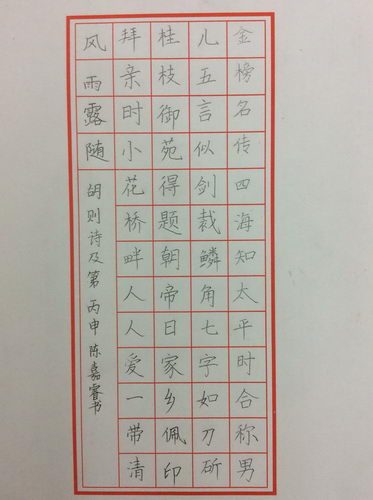 金榜名传四海知太平时合称男
儿五言似剑裁鳞角七字如刀斫
桂枝御苑得题朝帝日家乡佩印
拜亲时小花桥畔人人爱一带清
风雨露随
胡则诗及第 丙申 陈嘉睿书